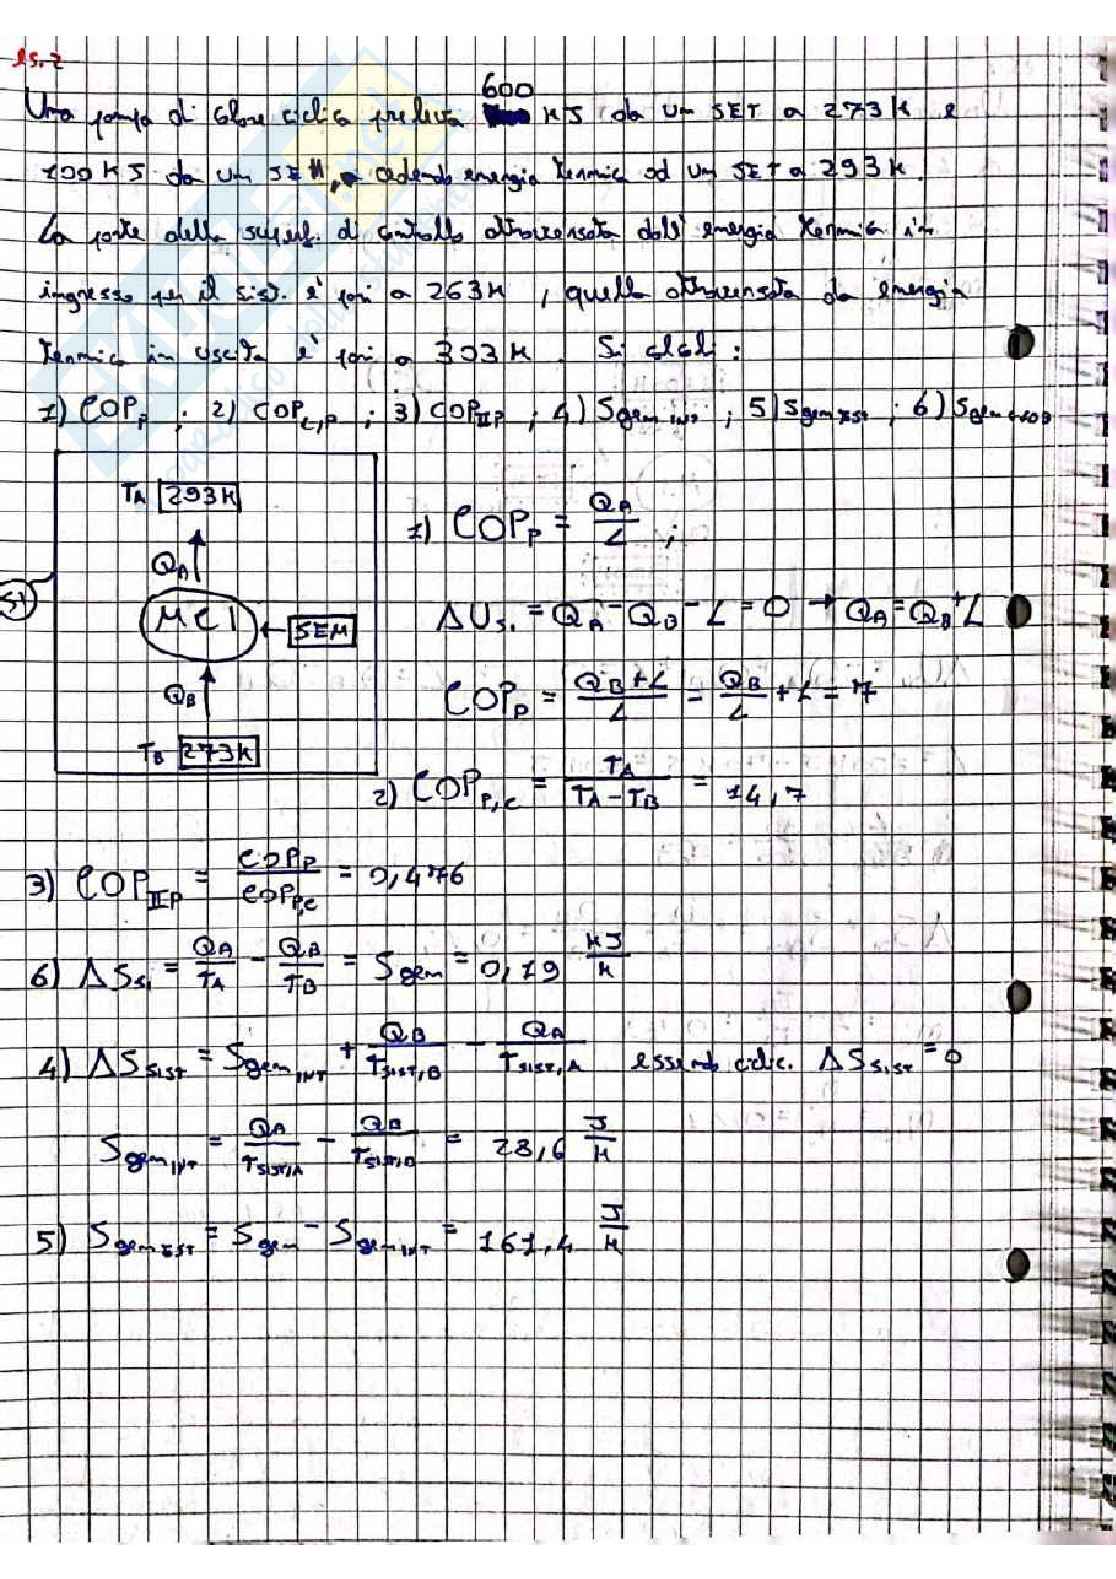 es. 2
Una pompa di calore ciclica preleva 600 KJ da un SET a 273K e
100 KJ da un SEM, cedendo energia termica ad un SET a 293K.
La parte della superf. di controllo attraversata dall' energia termica in
ingresso per il sist. e' pari a 263K, quella attraversata da energia
termica in uscita e' pari a 303K. Si calcoli:
1) COP_P ; 2) COP_C,P ; 3) COP_IIP ; 4) Sgen INT ; 5) Sgen EST ; 6) Sgen GLOB
T_A 293K
Q_A
SI
MCI
SEM
Q_B
T_B 273K
1) COP_P = Q_A / L ;
ΔU_S. = Q_A - Q_B - L = 0 → Q_A = Q_B + L
COP_P = Q_B + L / L = Q_B / L + L = 7
2) COP_P,C = T_A / T_A - T_B = 14,7
3) COP_IIP = COP_P / COP_P,C = 0,476
6) ΔS_Si = Q_A / T_A - Q_B / T_B = Sgen = 0,19 KJ / K
4) ΔS_SIST = Sgen_INT + Q_B / T_SIST,B - Q_A / T_SIST,A essendo ciclic. ΔS_SIST = 0
Sgen_INT = Q_A / T_SIST,A - Q_B / T_SIST,B = 28,6 J / K
5) Sgen EST = Sgen - Sgen_INT = 161,4 J / K